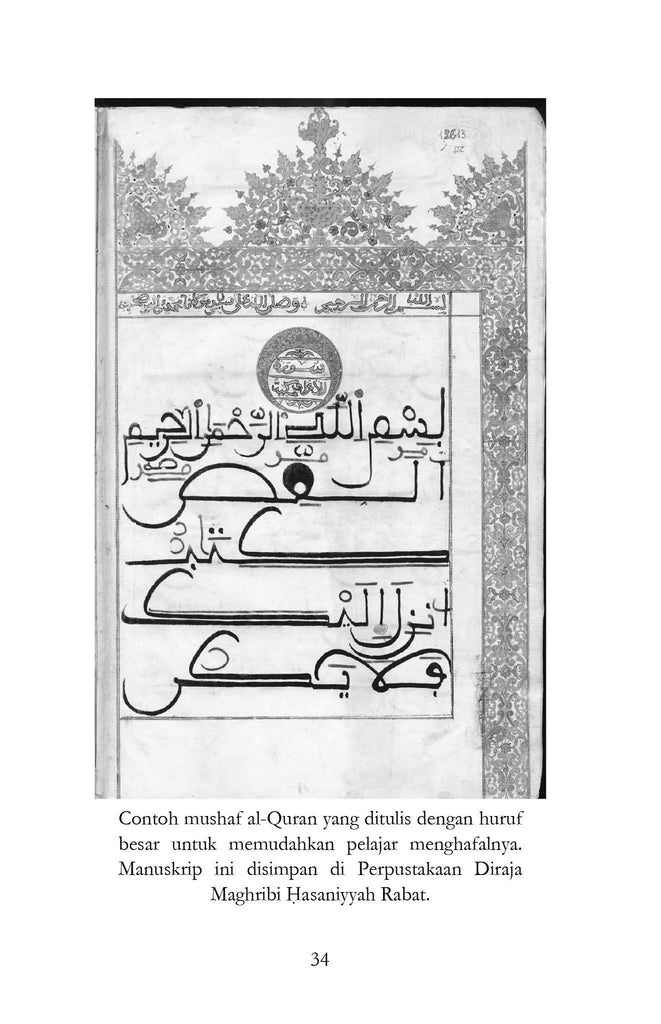 بسم الله الرحمن الرحيم وصلى الله على سيدنا ومولانا محمد
سورة
الأعراف مكية
بِسْمِ اللَّهِ الرَّحْمَنِ الرَّحِيمِ
المص
كتب
انزل اليك
فلا يكن
Contoh mushaf al-Quran yang ditulis dengan huruf
besar untuk memudahkan pelajar menghafalnya.
Manuskrip ini disimpan di Perpustakaan Diraja
Maghribi Ḥasaniyyah Rabat.
34